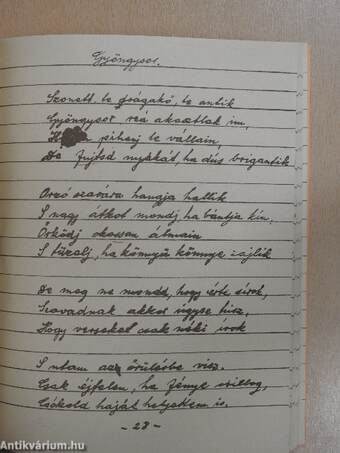 Gyöngysor.
Szonett, te drágakő, te antik
Gyöngysor reá akasztlak im,
pihenj te vállain,
De fujtsd nyakát, ha dus brigantik
Orzó szavára hangja hallik
S nagy átkot mondj, ha bántja kin,
Őrködj okosan álmain
S tüzelj, ha könnyü könnye zajlik
De meg ne mondd, hogy érte sirok,
Szavadnak akkor ugyse hisz,
Hogy verseket csak néki irok
S utam az őrülésbe visz.
Csak éjfelen, ha fénye csillog,
Csókold haját helyettem is.
- 28 -
Antikvárium.hu